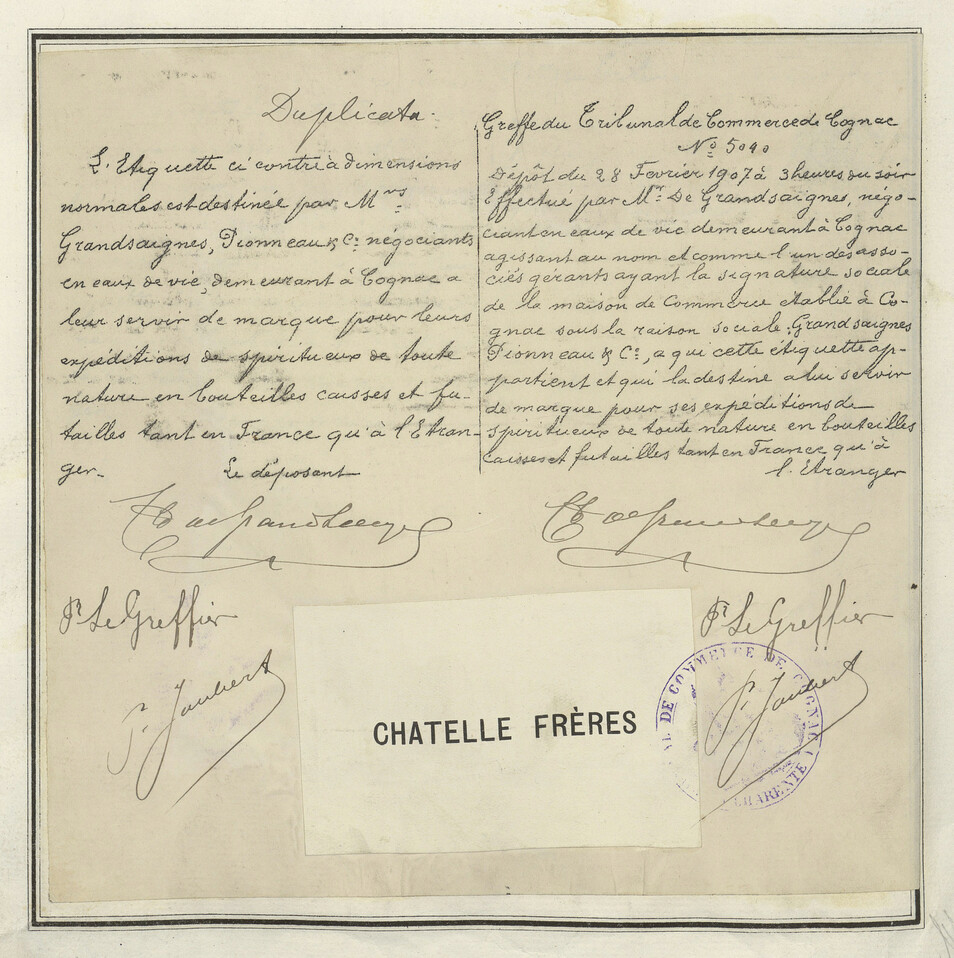 Duplicata.
L'Etiquette ci contre à dimensions
normales est destinée par Mrs
Grandsaignes, Pionneau & Cie négociants
en eaux de vie, demeurant à Cognac a
leur servir de marque pour leurs
expéditions de spiritueux de toute
nature en bouteilles caisses et fu-
tailles tant en France qu'à l'Etran-
ger.
Le déposant
Greffe du Tribunal de Commerce de Cognac
No 5090
Dépôt du 28 Fevrier 1907 à 3 heures du soir
Effectué par Mr. De Grandsaignes, négo-
ciant en eaux de vie demeurant à Cognac
agissant au nom et comme l'un des asso-
ciés gérants ayant la signature sociale
de la maison de Commerce établie à Co-
gnac sous la raison sociale: Grandsaignes
Pionneau & Cie, a qui cette étiquette ap-
partient et qui la destine a lui servir
de marque pour ses expéditions de
spiritueux de toute nature en bouteilles
caisses et futailles tant en France qu'à
l'Etranger
Pr Le Greffier
P. Jaubert
Pr Le Greffier
P. Jaubert
CHATELLE FRÈRES
DE COMMERCE DE COGNAC
CHARENTE